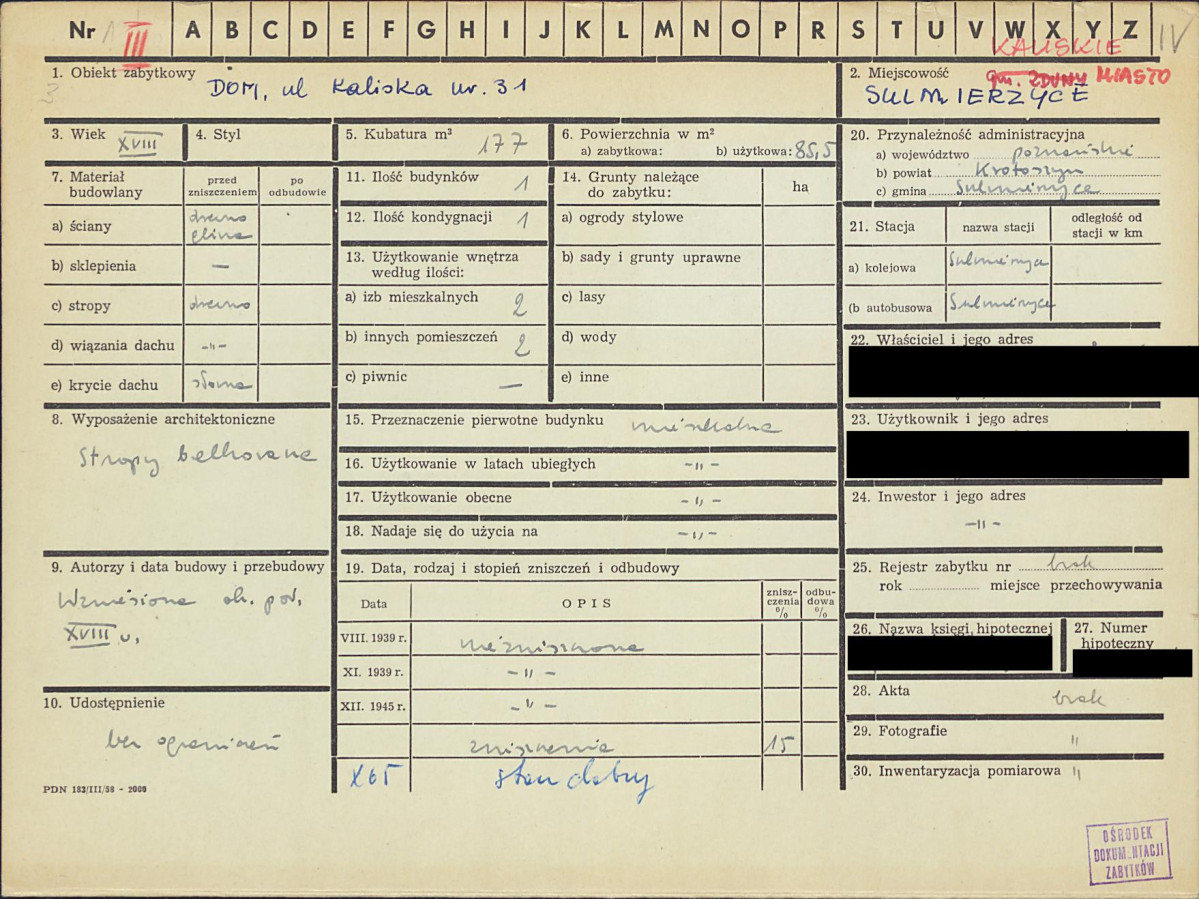 Nr 1 III A B C D E F G H I J K L M N O P R S T U V W X Y Z IV
1. Obiekt zabytkowy
DOM, ul Kaliska nr. 31
3
2. Miejscowość
KALISKIE
gm. ZDUNY MIASTO
SULMIERZYCE
3. Wiek XVIII
4. Styl
5. Kubatura m³ 177
6. Powierzchnia w m²
a) zabytkowa: b) użytkowa: 85,5
20. Przynależność administracyjna
a) województwo poznańskie
b) powiat Krotoszyn
c) gmina Sulmierzyce
7. Materiał budowlany
przed zniszczeniem
po odbudowie
a) ściany drewno glina
b) sklepienia —
c) stropy drewno
d) wiązania dachu -"-
e) krycie dachu słoma
11. Ilość budynków 1
12. Ilość kondygnacji 1
13. Użytkowanie wnętrza
według ilości:
a) izb mieszkalnych 2
b) innych pomieszczeń 2
c) piwnic —
14. Grunty należące
do zabytku:
ha
a) ogrody stylowe
b) sady i grunty uprawne
c) lasy
d) wody
e) inne
21. Stacja
nazwa stacji
odległość od
stacji w km
a) kolejowa Sulmierzyce
(b autobusowa Sulmierzyce
22. Właściciel i jego adres
23. Użytkownik i jego adres
24. Inwestor i jego adres
-"-
8. Wyposażenie architektoniczne
Stropy belkowane
15. Przeznaczenie pierwotne budynku mieszkalne
16. Użytkowanie w latach ubiegłych -"-
17. Użytkowanie obecne -"-
18. Nadaje się do użycia na -"-
9. Autorzy i data budowy i przebudowy
Wzniesione ok. poł.
XVIII w.
19. Data, rodzaj i stopień zniszczeń i odbudowy
Data
OPIS
znisz-
czenia
%
odbu-
dowa
%
VIII. 1939 r. niezniszczone
XI. 1939 r. -"-
XII. 1945 r. -"-
zniszczenie 15
X 65 stan dobry
25. Rejestr zabytku nr brak
rok miejsce przechowywania
26. Nazwa księgi hipotecznej
27. Numer
hipoteczny
28. Akta brak
29. Fotografie "
30. Inwentaryzacja pomiarowa "
10. Udostępnienie
bez ograniczeń
PDN 183/III/58 - 2000
OŚRODEK
DOKUMENTACJI
ZABYTKÓW